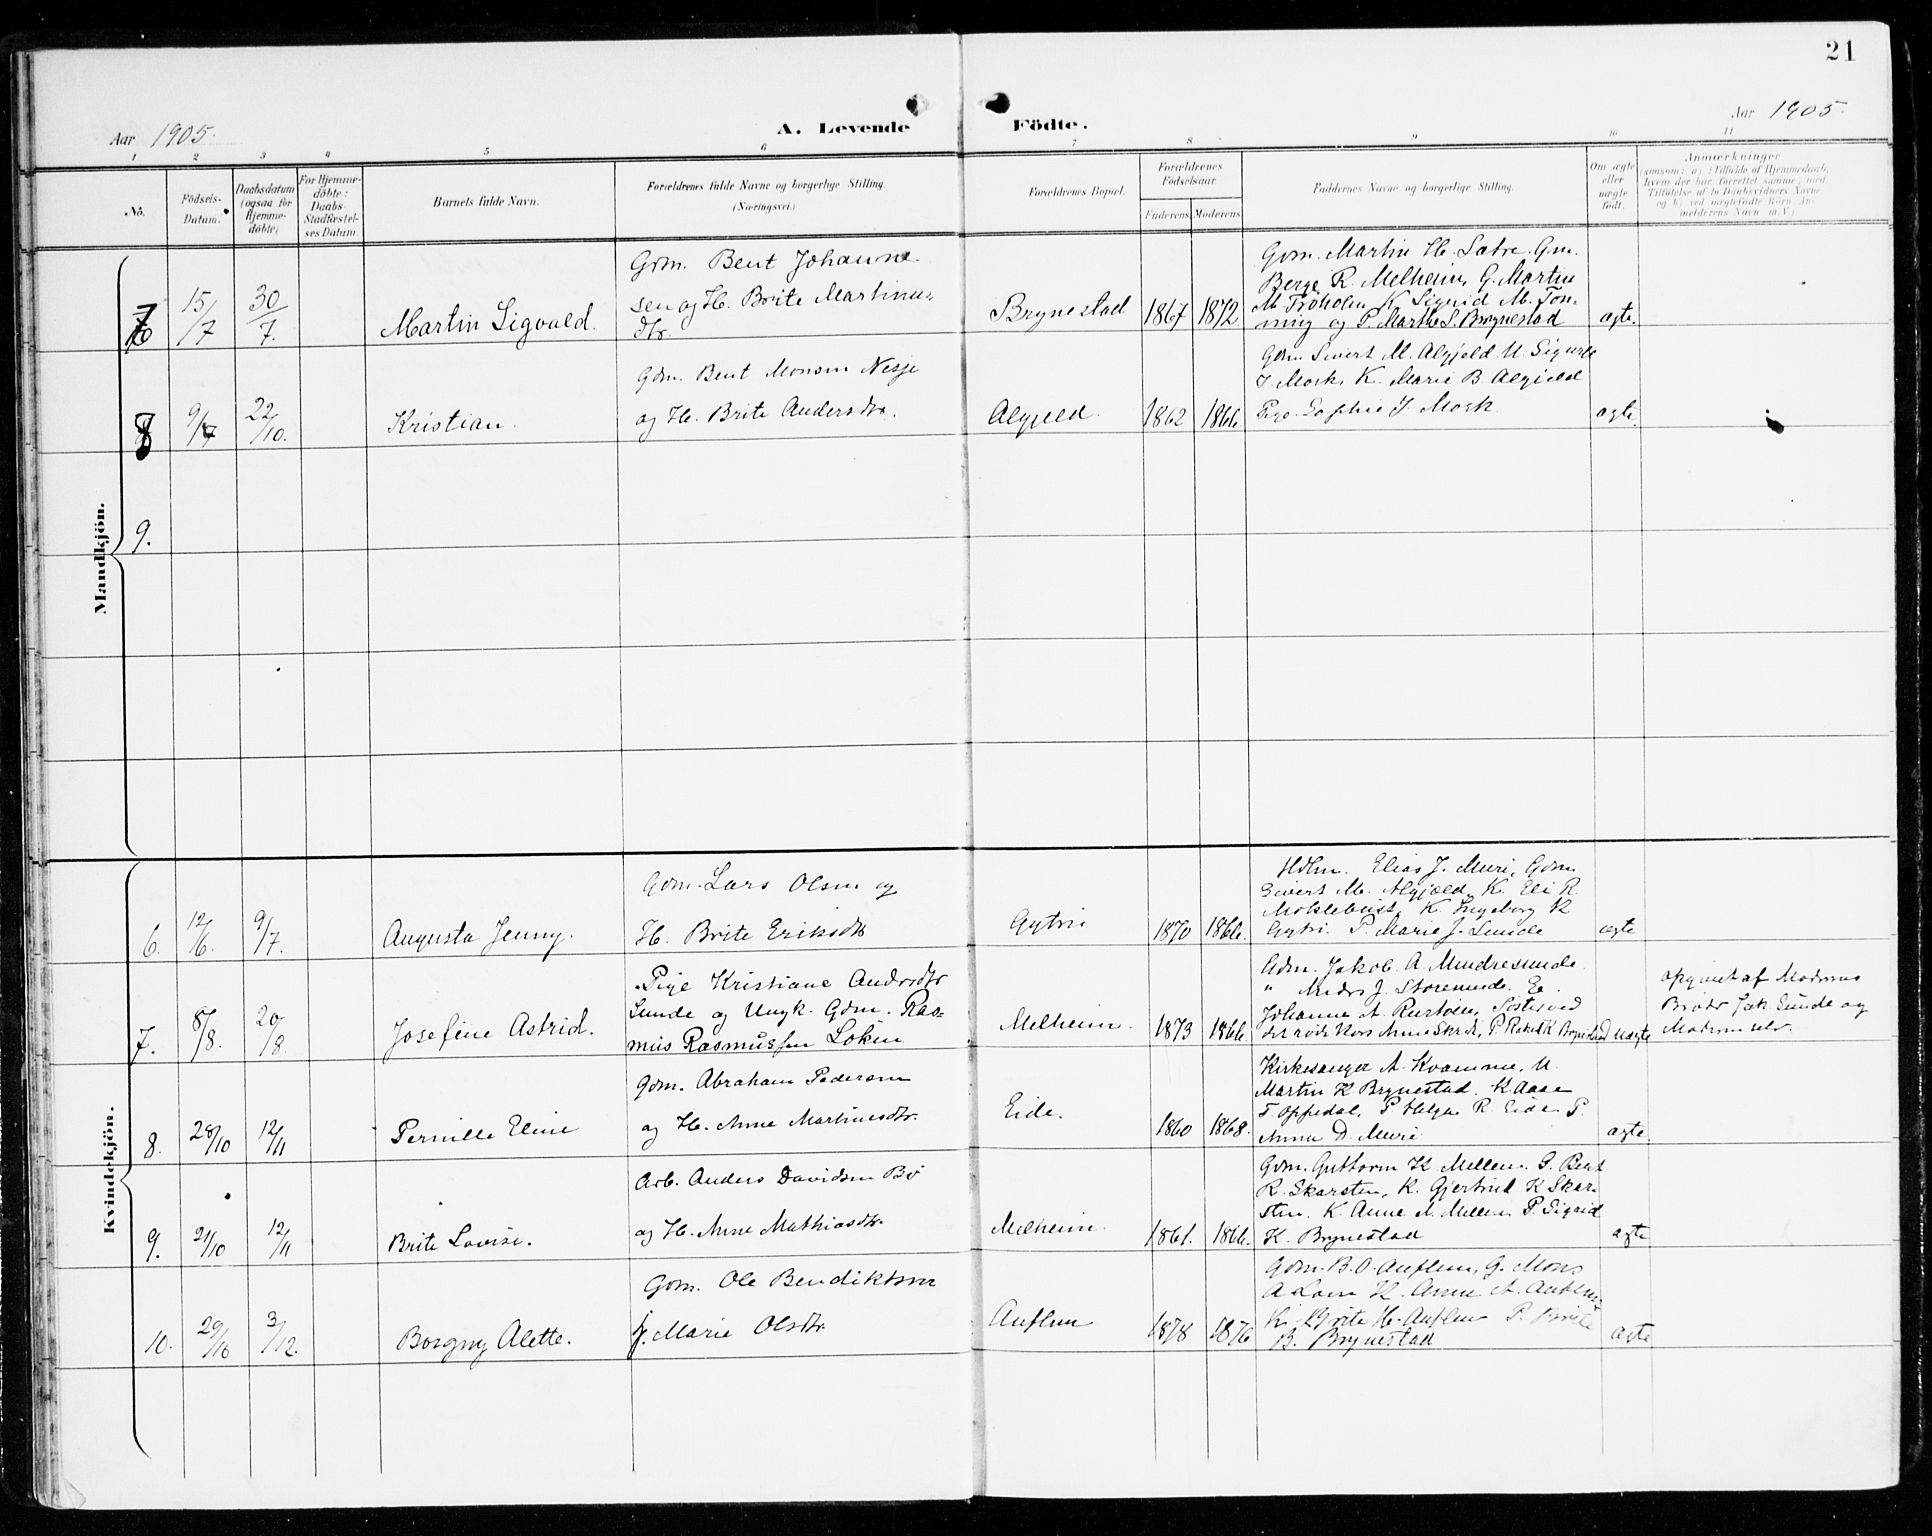 21
Aar 1905.
A. Levende Födte.
Aar 1905.
1 2 3 4 5 6 7 8 9 10 11
No.
Födsels-Datum.
Daabsdatum (ogsaa for Hjemmedöbte)
For Hjemmedöbte: Daabs-Stadfæstelses Datum.
Barnets fulde Navn.
Forældrenes fulde Navne og borgerlige Stilling. (Næringsvei.)
Forældrenes Bopæl.
Forældrenes Födselsaar.
Faderens Moderens
Faddernes Navne og borgerlige Stilling.
Om ægte eller uægte födt.
Anmærkninger
(saasom: a) i Tilfælde af Hjemmedaab, hvem der har forrettet samme, med Tilföielse af to Daabsvidners Navne, og b) ved uægtefödte Börn Anmelderens Navn m.V.)
Mandkjön.
7
15/7
30/7.
Martin Sigvald.
Gdm. Bent Johanne-
sen og H. Brite Martinus-
dtr.
Brynestad
1867
1872
Gdm. Martin H. Sætre. Gm.
Berge R. Melheim, G. Martin
M. Fröholm K. Sigrid M. Ton-
ning og P. Marthe S. Brynestad
ægte.
8
9/
22/10.
Kristian.
Gdm. Bent Monsen Nesje
og H. Brite Andersdtr.
Algjeld.
1862
1866.
Gdm. Sivert M. Algjeld U. Sigurd
J. Mork, K. Marie B Algjeld
Pige Sophie J Mork.
ægte.
9.
Kvindekjön.
6.
12/6.
9/7.
Augusta Jenny.
Gdm. Lars Olsen og
H. Brite Eriksdtr
Gytri
1870
1866.
Elias J. Muri, Gdm
Sivert M. Algjeld, K. Eli R.
Mokleb\ust, K. Ingeborg K
Gytri. P. Marie J. Sunde
ægte
7.
8/8.
20/8.
Josefine Astrid.
Pige Kristiane Andersdtr
Sunde og Ungk. Gdm. Ras-
mus Rasmussen Löken
Melheim.
1873
1866.
Gdm. Jakob A. Mindresunde
" Anders J. Storesunde. E.
Johanne A. Rustöen, Söster ved
det röde Kors Anne P Brynestad
uægte
opgivet af Moderens
Broder Jak Sunde og
Moderen selv.
8.
28/10
12/11
Pernille Eline
Gdm. Abraham Pedersen
og H. Anne Martinusdtr.
Eide.
1860
1868.
Kirkesanger A. Kvamme, U.
Martin K Brynestad. K Aase
T. Oppedal, P Helga R. Eide P.
Anna D. Muri
ægte.
9.
21/10
12/11
Brite Lovise.
Arb. Anders Davidsen Bö
og H. Anne Mathiasdtr.
Melheim.
1861.
1866.
Gdm. Guttorm K Mellem. G. Bent
R. Skarsten, K. Gjertrud K Skar-
sten. K. Anne A. Mellem P. Sigrid
K. Brynestad
ægte
10.
29/10
3/12.
Borgny Alette.
Gdm. Ole Bendiktsen
H. Marie Olsdtr.
Auflem
1878
1876
Gdm. B. O. Auflem, G. Mons
A Loen K. Anne A. Auflem
K. Brite H. Auflem P. Brite
B. Brynestad
ægte